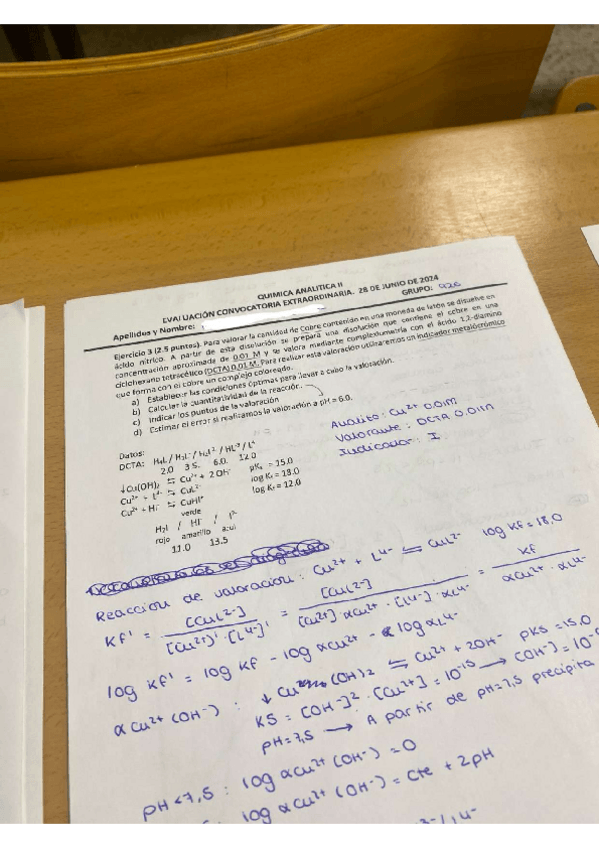 QUIMICA ANALITICA II
EVALUACIÓN CONVOCATORIA EXTRAORDINARIA. 28 DE JUNIO DE 2024
Apellidos y Nombre: GRUPO: 926
Ejercicio 3 (2.5 puntos). Para valorar la cantidad de Cobre contenido en una moneda de latón se disuelve en
ácido nítrico. A partir de esta disolución se prepara una disolución que contiene el cobre en una
concentración aproximada de 0.01 M y se valora mediante complexometría con el ácido 1,2-diamino
ciclohexano tetracético (DCTA) 0,01 M. Para realizar esta valoración utilizaremos un indicador metalocrómico
que forma con el cobre un complejo coloreado.
a) Establecer las condiciones óptimas para llevar a cabo la valoración.
b) Calcular la cuantitatividad de la reacción.
c) Indicar los puntos de la valoración
d) Estimar el error si realizamos la valoración a pH = 6.0.
Analito: Cu²⁺ 0.01M
Valorante: DCTA 0.01M
Indicador: I
Datos:
DCTA: H₄L / H₃L⁻ / H₂L²⁻ / HL³⁻ / L⁴⁻
2.0 3.5 6.0 12.0
↓Cu(OH)₂ ⇆ Cu²⁺ + 2 OH⁻ pKs = 15.0
Cu²⁺ + L⁴⁻ ⇆ CuL²⁻ log Kf = 18.0
Cu²⁺ + HI⁻ ⇆ CuHI⁺ log Kf = 12.0
verde
H₂I / HI⁻ / I²⁻
rojo amarillo azul
11.0 13.5
Reacción de valoración: Cu²⁺ + L⁴⁻ ⇆ CuL²⁻ log Kf = 18.0
Kf' = [CuL²⁻] / [Cu²⁺]' · [L⁴⁻]' = [CuL²⁻] / [Cu²⁺] · αCu²⁺ · [L⁴⁻] · αL⁴⁻ = Kf / αCu²⁺ · αL⁴⁻
log Kf' = log Kf - log αCu²⁺ - log αL⁴⁻
αCu²⁺(OH⁻) : ↓Cu(OH)₂ ⇆ Cu²⁺ + 2OH⁻ pKs = 15.0
Ks = [OH⁻]² · [Cu²⁺] = 10⁻¹⁵ → [OH⁻] = 10⁻
pH = 7,5 → A partir de pH = 7,5 precipita
pH < 7,5 : log αCu²⁺(OH⁻) = 0
log αCu²⁺(OH⁻) = cte + 2pH